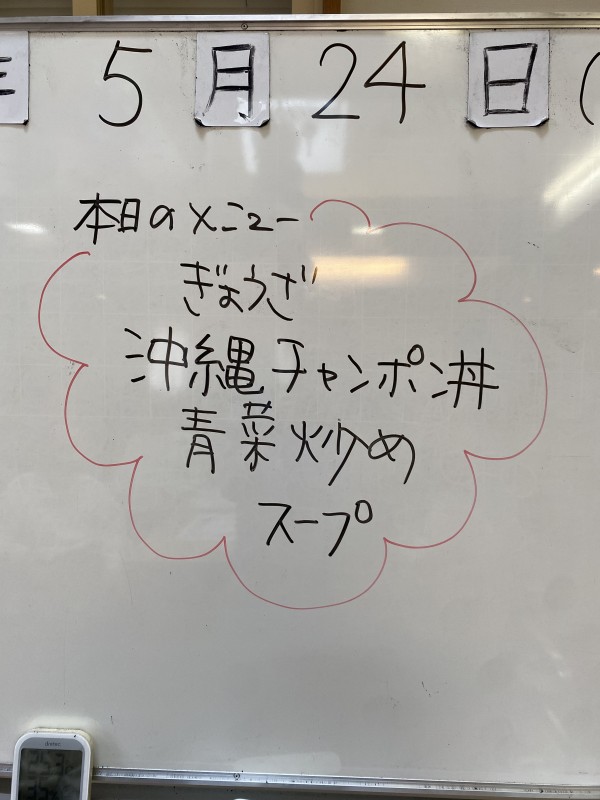 年 5月24日(
本日のメニュー
ぎょうざ
沖縄チャンポン丼
青菜炒め
スープ